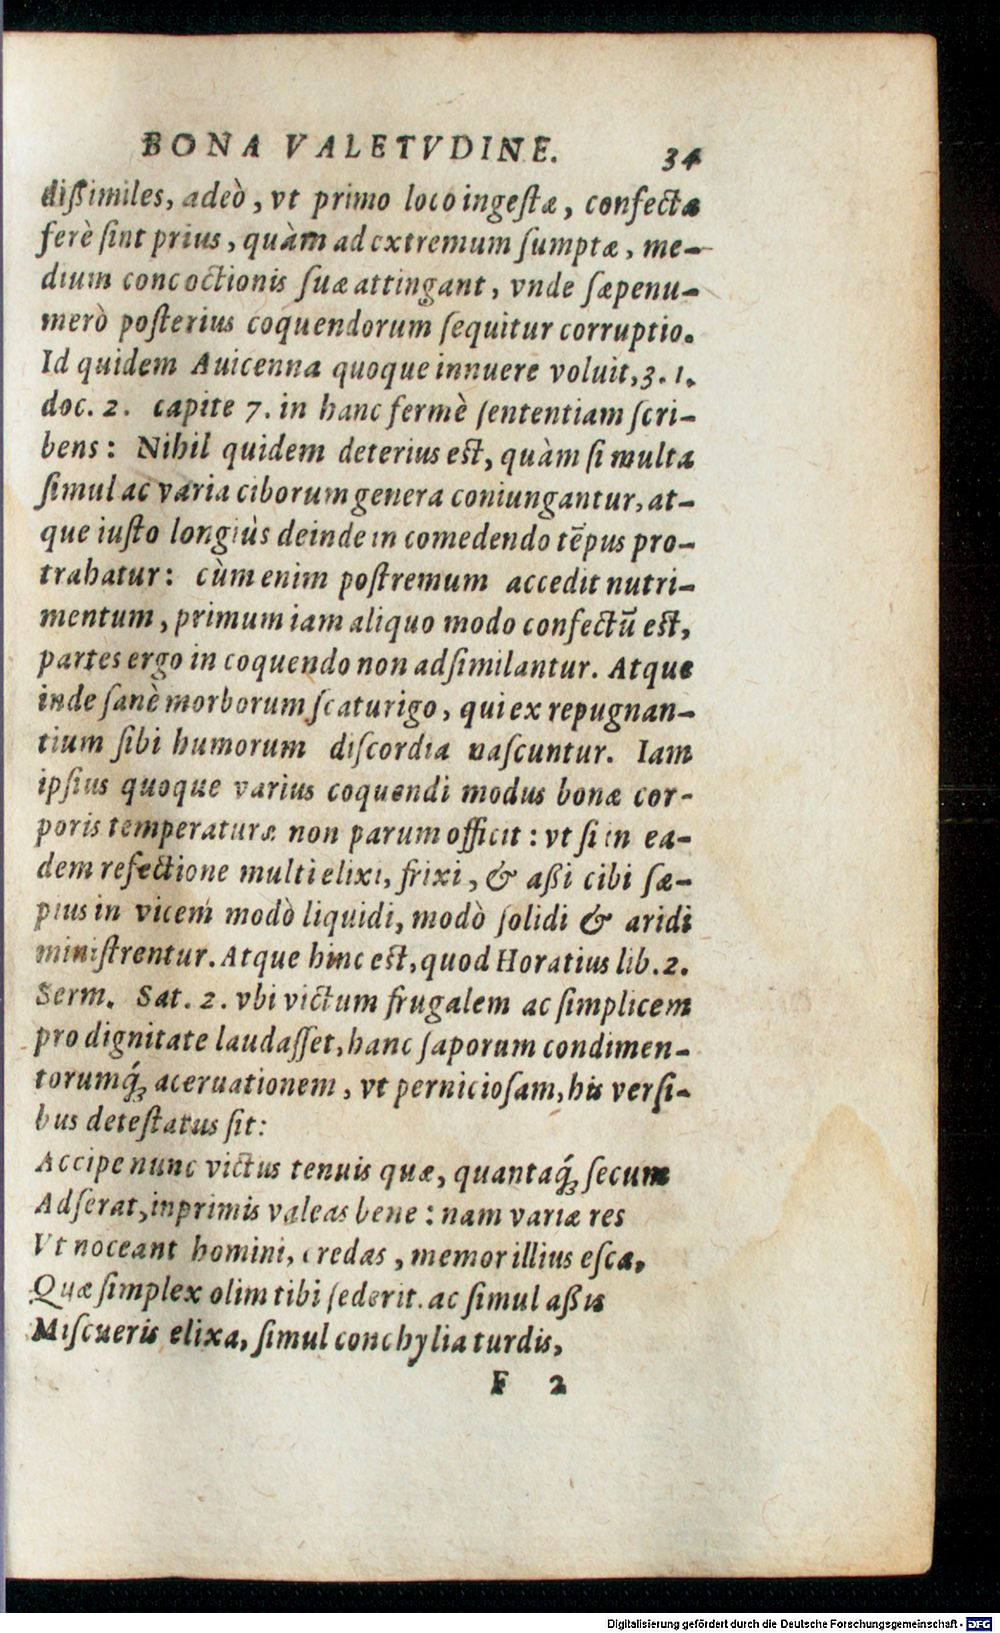 BONA VALETVDINE. 34
dißimiles, adeò, vt primo loco ingeſtæ, confectæ
ferè ſint prius, quàm ad extremum ſumptæ, me-
dium concoctionis ſuæ attingant, vnde ſæpenu-
merò poſterius coquendorum ſequitur corruptio.
Id quidem Auicenna quoque innuere voluit, 3. 1.
doc. 2. capite 7. in hanc fermè ſententiam ſcri-
bens: Nihil quidem deterius est, quàm ſi multa
ſimul ac varia ciborum genera coniungantur, at-
que iuſto longiùs deinde in comedendo tẽpus pro-
trahatur: cùm enim poſtremum accedit nutri-
mentum, primum iam aliquo modo confectũ est,
partes ergo in coquendo non adſimilantur. Atque
inde ſanè morborum ſcaturigo, qui ex repugnan-
tium ſibi humorum diſcordia naſcuntur. Iam
ipſius quoque varius coquendi modus bonæ cor-
poris temperaturæ non parum officit: vt ſi in ea-
dem refectione multi elixi, frixi, & aßi cibi ſæ-
pius in vicem modò liquidi, modò ſolidi & aridi
miniſtrentur. Atque hinc est, quod Horatius lib. 2.
Serm. Sat. 2. vbi victum frugalem ac ſimplicem
pro dignitate laudaſſet, hanc ſaporum condimen-
torumq́; aceruationem, vt pernicioſam, his verſi-
bus deteſtatus ſit:
Accipe nunc victus tenuis quæ, quantaq́; ſecum
Adferat, inprimis valeas bene: nam variæ res
Vt noceant homini, credas, memor illius eſcæ,
Quæ ſimplex olim tibi ſederit. ac ſimul aßis
Miſcueris elixa, ſimul conchylia turdis,
F 2
Digitalisierung gefördert durch die Deutsche Forschungsgemeinschaft - DFG